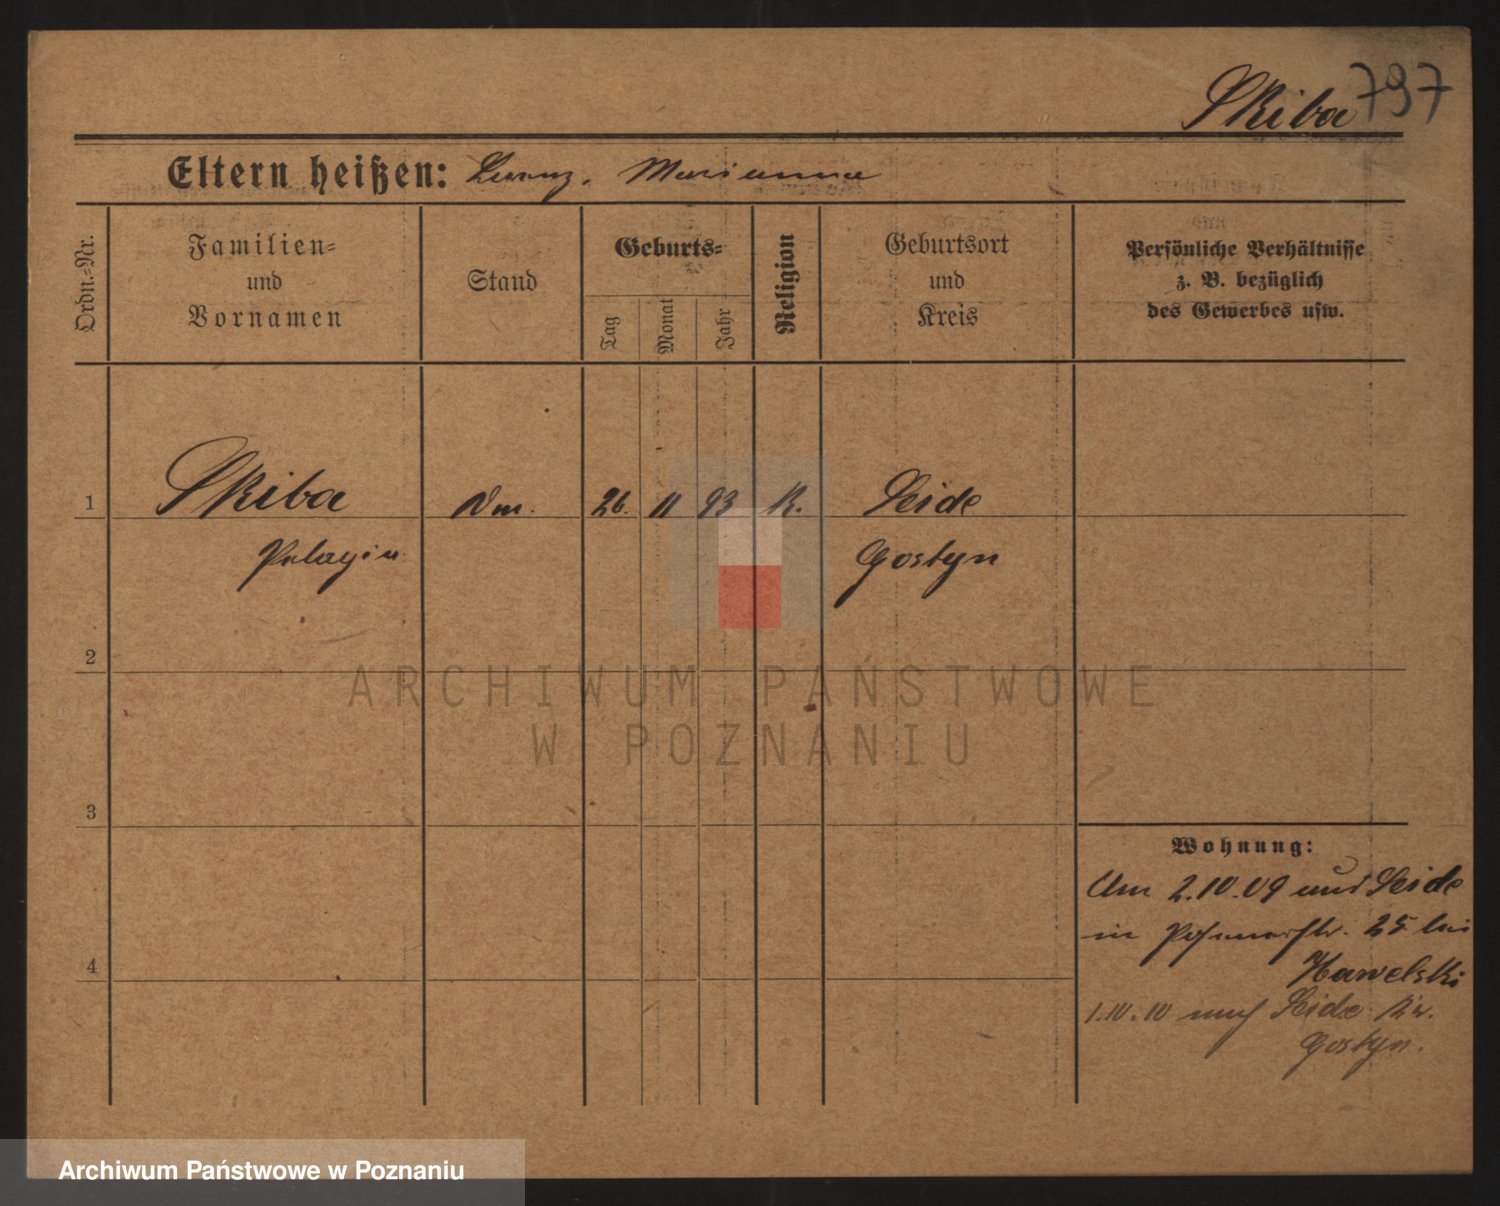 Skiba 797
Eltern heißen: Lorenz. Marianna
Ordn.-Nr.
Familien-
und
Vornamen
Stand
Geburts-
Tag
Monat
Jahr
Religion
Geburtsort
und
Kreis
Persönliche Verhältnisse
z. B. bezüglich
des Gewerbes usw.
1 Skiba 26. 11 93 K. Seide
Pelagia Gostyn
2
ARCHIWUM PAŃSTWOWE
W POZNANIU
3
Wohnung:
Am 2.10.09 aus Seide
in Posenerstr. 25 bei
Hawelski
4
1.10.10 nach Seide Kr.
Gostyn.
Archiwum Państwowe w Poznaniu